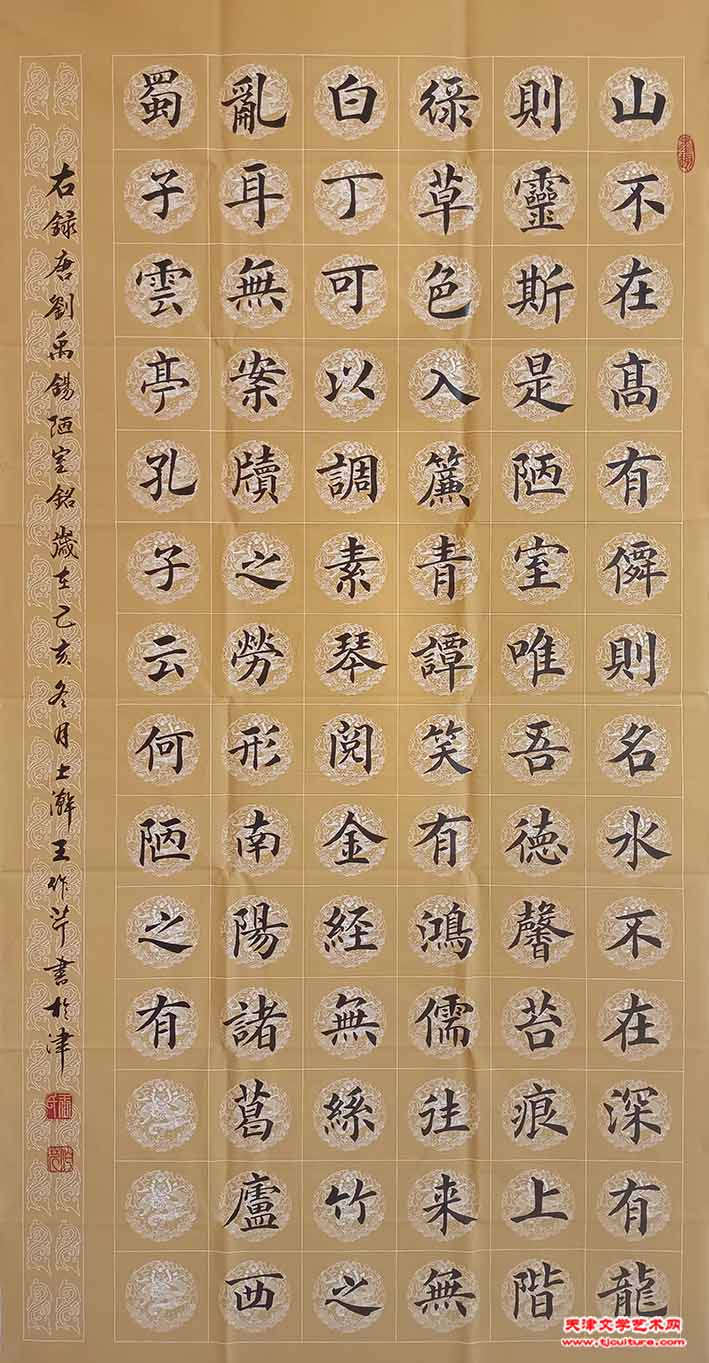 山不在高有僊則名水不在深有龍
則靈斯是陋室唯吾德馨苔痕上階
綠草色入簾青譚笑有鴻儒往来無
白丁可以調素琴閱金経無絲竹之
亂耳無案牘之勞形南陽諸葛廬西
蜀子雲亭孔子云何陋之有
右録唐劉禹錫陋室銘歲在己亥冬月上澣王作芹書於津
天津文学艺术网
www.tjculture.com